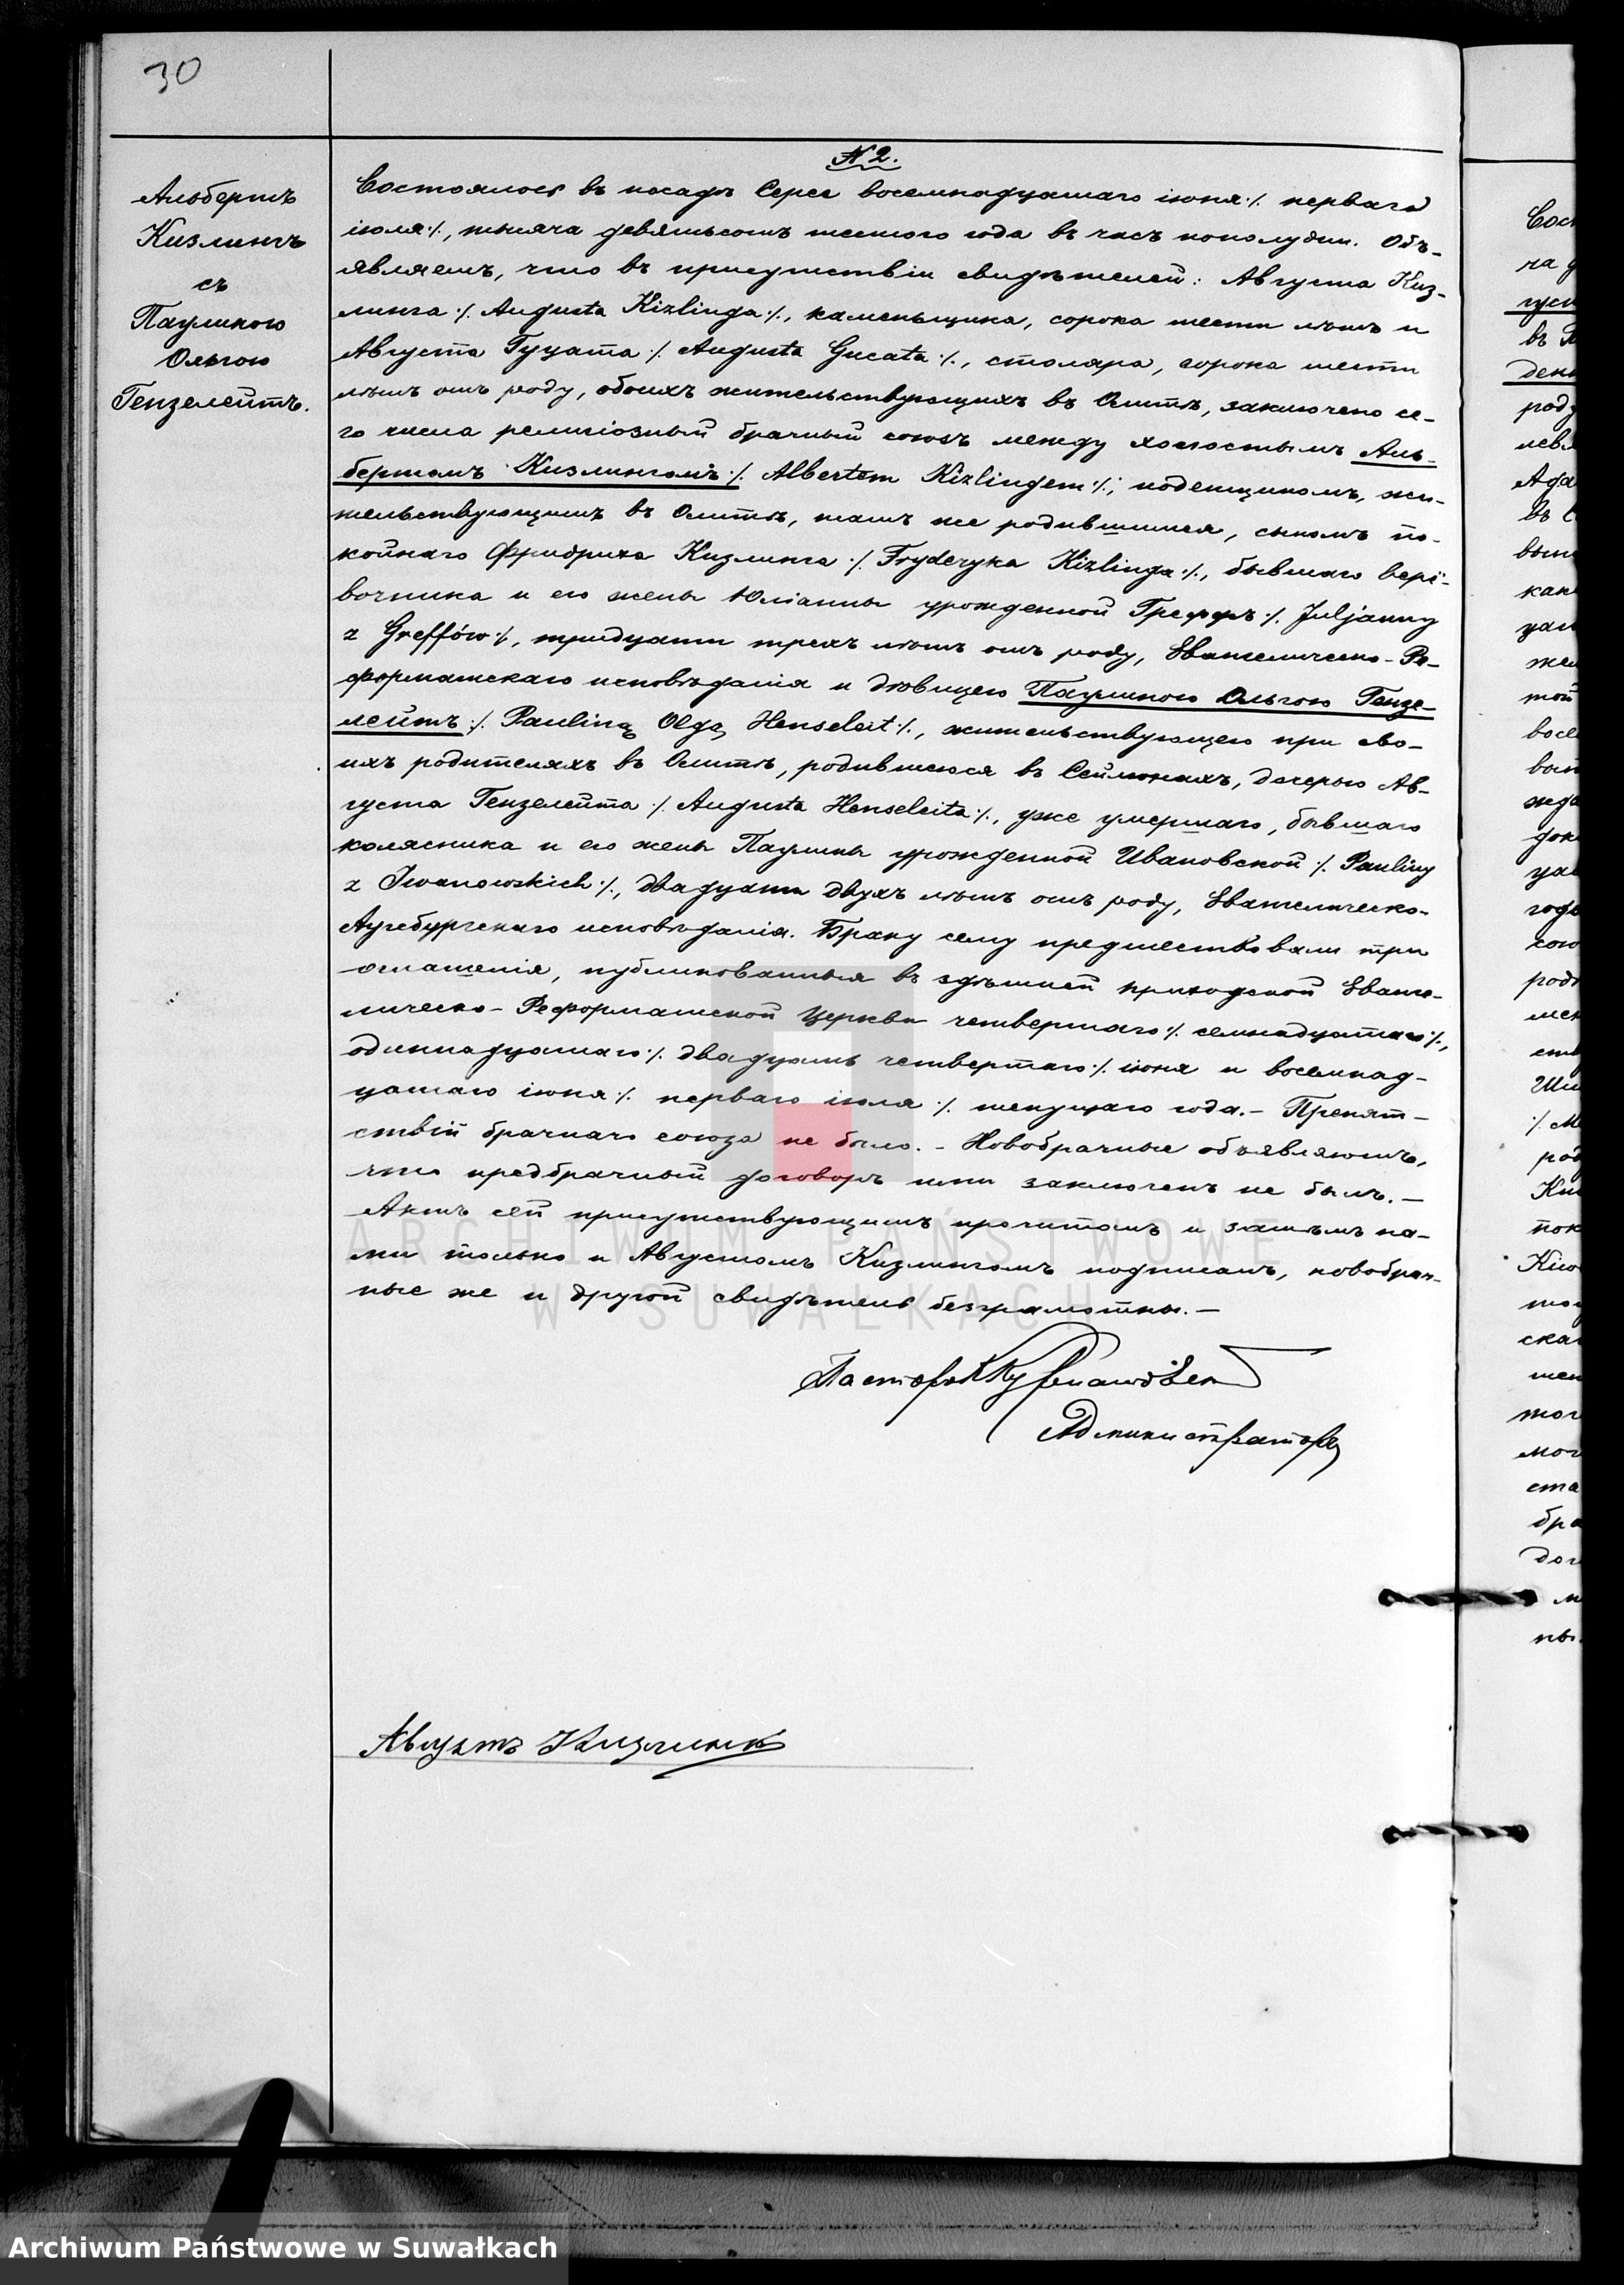 30
№ 2.
Альбертъ
Кизлингъ
съ
Паулиною
Ольгою
Гензелейтъ.
Состоялось въ посадѣ Сереѣ восемнадцатаго іюня ./. перваго
іюля ./., тысяча девятьсотъ шестого года въ часъ пополудни. Объ-
являемъ, что въ присутствіи свидѣтелей: Августа Киз-
линга ./. Augusta Kizlinga ./., каменьщика, сорока шести лѣтъ и
Августа Гуцата ./. Augusta Gucata ./., столяра, сорока шести
лѣтъ отъ роду, обоихъ жительствующихъ въ Олитѣ, заключено се-
го числа религіозный брачный союзъ между холостымъ Аль-
бертомъ Кизлингомъ ./. Albertem Kizlingem ./., поденщикомъ, жи-
тельствующимъ въ Олитѣ, тамъ же родившимся, сыномъ по-
койнаго Фридриха Кизлинга ./. Fryderyka Kizlinga ./., бывшаго верё-
вочника и его жены Юліанны урожденной Греффъ ./. Juljanny
z Greffów ./., тридцати трехъ лѣтъ отъ роду, Евангелическо-Ре-
форматскаго исповѣданія и дѣвицею Паулиною Ольгою Гензе-
лейтъ ./. Pauliną Olgą Henseleit ./., жительствующею при сво-
ихъ родителяхъ въ Олитѣ, родившеюся въ Сейлюнахъ, дочерью Ав-
густа Гензелейта ./. Augusta Henseleita ./., уже умершаго, бывшаго
колясника и его жены Паулины урожденной Ивановской ./. Pauliny
z Iwanowskich ./., двадцати двухъ лѣтъ отъ роду, Евангелическо-
Аугсбургскаго исповѣданія. Браку сему предшествовали три
оглашенія, публикованныя въ здѣшней приходской Еванге-
лическо-Реформатской Церкви четвертаго ./. семнадцатаго ./.,
одиннадцатаго ./. двадцать четвертаго ./. іюня и восемнад-
цатаго іюня ./. перваго іюля ./. текущаго года.- Препят-
ствій брачнаго союза не было.- Новобрачные объявляютъ,
что предбрачный договоръ ими заключенъ не былъ.-
Актъ сей присутствующимъ прочитанъ и затѣмъ на-
ми только и Августомъ Кизлингомъ подписанъ, новобрач-
ные же и другой свидѣтель безграмотны.-
Пасторъ
Администраторъ
Августъ Кизлинкъ
ARCHIWUM PAŃSTWOWE
W SUWAŁKACH
Archiwum Państwowe w Suwałkach